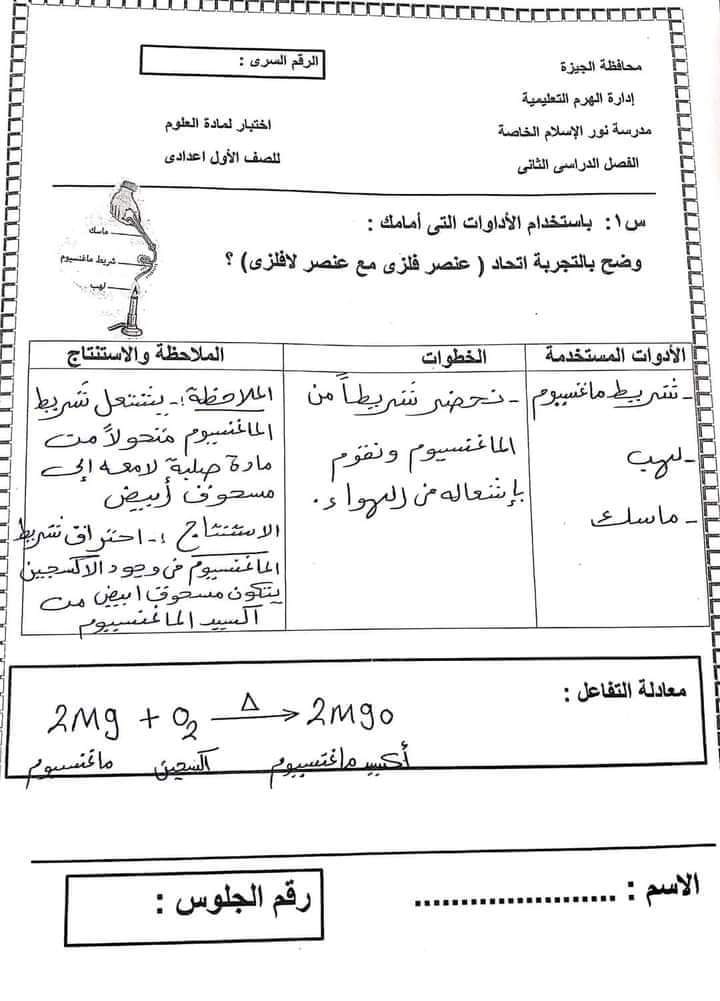 محافظة الجيزة
الرقم السرى :
إدارة الهرم التعليمية
مدرسة نور الإسلام الخاصة
اختبار لمادة العلوم
الفصل الدراسى الثانى
للصف الأول اعدادى
س١: باستخدام الأداوات التى أمامك :
وضح بالتجربة اتحاد ( عنصر فلزى مع عنصر لافلزى) ؟
ماسك
شريط ماغنسيوم
لهب
الأدوات المستخدمة
- شريط ماغنسيوم
- لهب
- ماسك
الخطوات
- نحضر شريطاً من
الماغنسيوم ونقوم
بإشعاله فى الهواء.
الملاحظة والاستنتاج
الملاحظة :- يشتعل شريط
الماغنسيوم متحولاً من
مادة صلبة لامعه إلى
مسحوق أبيض
الاستنتاج :- احتراق شريط
الماغنسيوم فى وجود الاكسجين
يتكون مسحوق ابيض من
اكسيد الماغنسيوم
معادلة التفاعل :
2Mg + O₂ —Δ→ 2Mgo
ماغنسيوم اكسجين أكسيد ماغنسيوم
الاسم : ......................
رقم الجلوس :